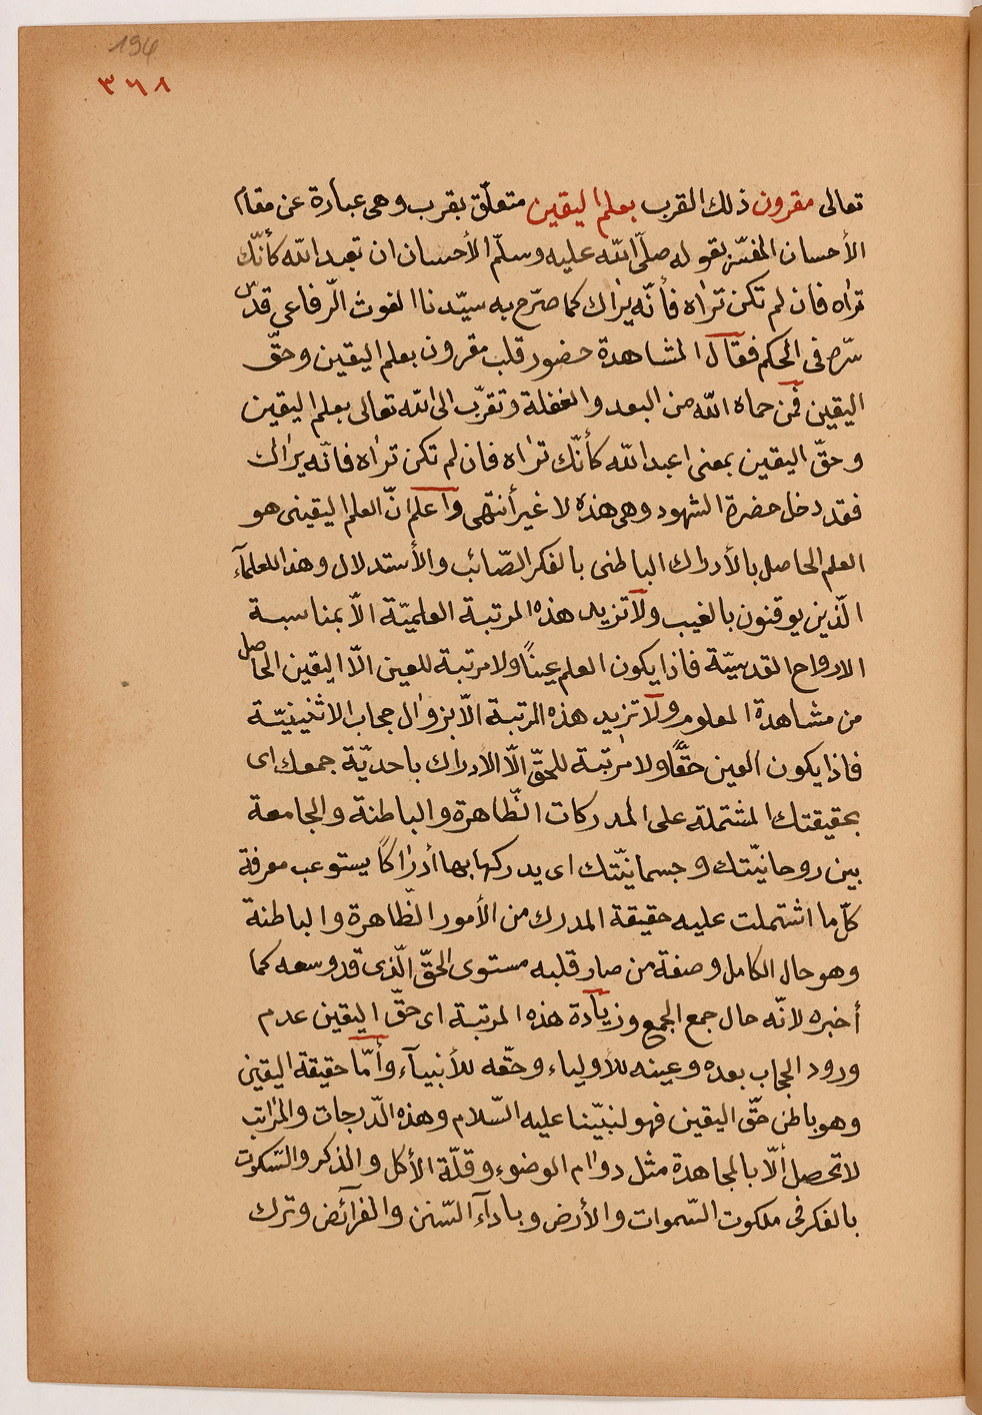 194
٣٦٨
تعالى مقرون ذلك القرب بعلم اليقين متعلّق بقرب وهى عبارة عن مقام
الأحسان المفسّر بقوله صلّى الله عليه وسلّم الأحسان ان تعبد الله كأنّك
تراه فان لم تكن تراه فأنّه يراك كما صرّح به سيّدنا الغوث الرّفاعى قدّس
سرّه فى الحكم فقال المشاهدة حضور قلب مقرون بعلم اليقين وحقّ
اليقين فمن حماه الله من البعد والغفلة وتقرّب الى الله تعالى بعلم اليقين
وحقّ اليقين بمعنى اعبد الله كأنّك تراه فان لم تكن تراه فانّه يراك
فقد دخل حضرة الشهود وهى هذه لا غير أنتهى وأعلم انّ العلم اليقينى هو
العلم الحاصل بالأدراك الباطنى بالفكر الصّائب والأستدلال وهذا للعلمآء
الّذين يوقنون بالغيب ولا تزيد هذه المرتبة العلميّة الاّ بمناسبة
الارواح القدسيّة فاذا يكون العلم عينًا ولا مرتبة للعين الاّ اليقين الحاصل
من مشاهدة المعلوم ولا تزيد هذه المرتبة الاّ بزوال حجاب الاثنينيّة
فاذا يكون العين حقًّا ولا مرتبة للحقّ الاّ الادراك باحديّة جمعك اى
بحقيقتك المشتملة على المدركات الظّاهرة والباطنة والجامعة
بين روحانيّتك وجسمانيّتك اى يدركها بها أدراكًا يستوعب معرفة
كلّ ما اشتملت عليه حقيقة المدرك من الأمور الظّاهرة والباطنة
وهو حال الكامل وصفة من صار قلبه مستوى الحقّ الّذى قد وسعه كما
أخبره لانّه حال جمع الجمع وزيادة هذه المرتبة اى حقّ اليقين عدم
ورود الحجاب بعده وعينه للأولياء وحقّه للأنبيآء وأمّا حقيقة اليقين
وهو باطن حقّ اليقين فهو لنبيّنا عليه السّلام وهذه الدّرجات والمراتب
لا تحصل ألاّ بالمجاهدة مثل دوام الوضوء وقلّة الأكل والذكر والسّكوت
بالفكر فى ملكوت السّموات والأرض وبادآء السّنن والفرآئض وترك